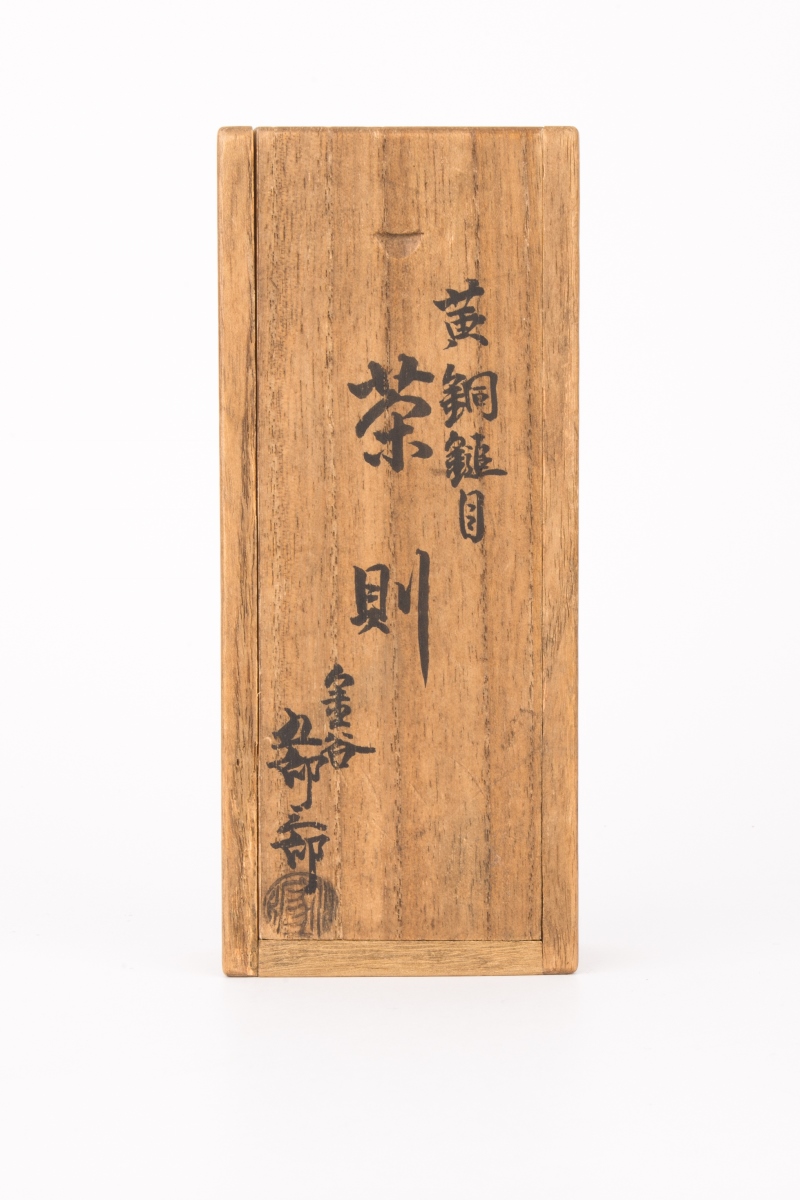 黄銅鎚目
茶則
金谷
五郎三郎